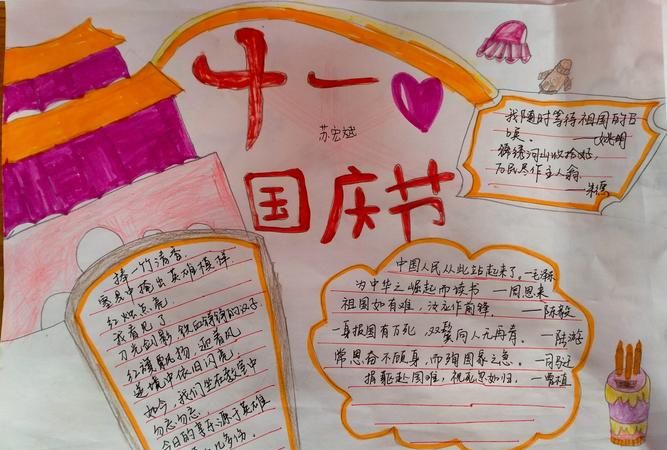 十一
苏宏斌
国庆节
我随时等待祖国的召
唤 ——姚明
锦绣河山收拾好,
万民尽作主人翁
朱德
捧一竹清香.
星晨中掩出英雄模样
红烛点亮
我看见了
刀光剑影,铁血铮铮的汉子
红旗飘扬,迎着风
逆境中依旧闪亮
如今,我们生在数字中
勿忘勿忘.
今日的幸乐源于英雄
中国人民从此站起来了.—毛泽东
为中华之崛起而读书 —周恩来
祖国如有难,汝应作前锋. —陈毅
一身报国有万死,双鬓向人无再青. —陆游
常思奋不顾身,而殉国家之急. —司马迁
捐躯赴国难,视死忽如归. —曹植